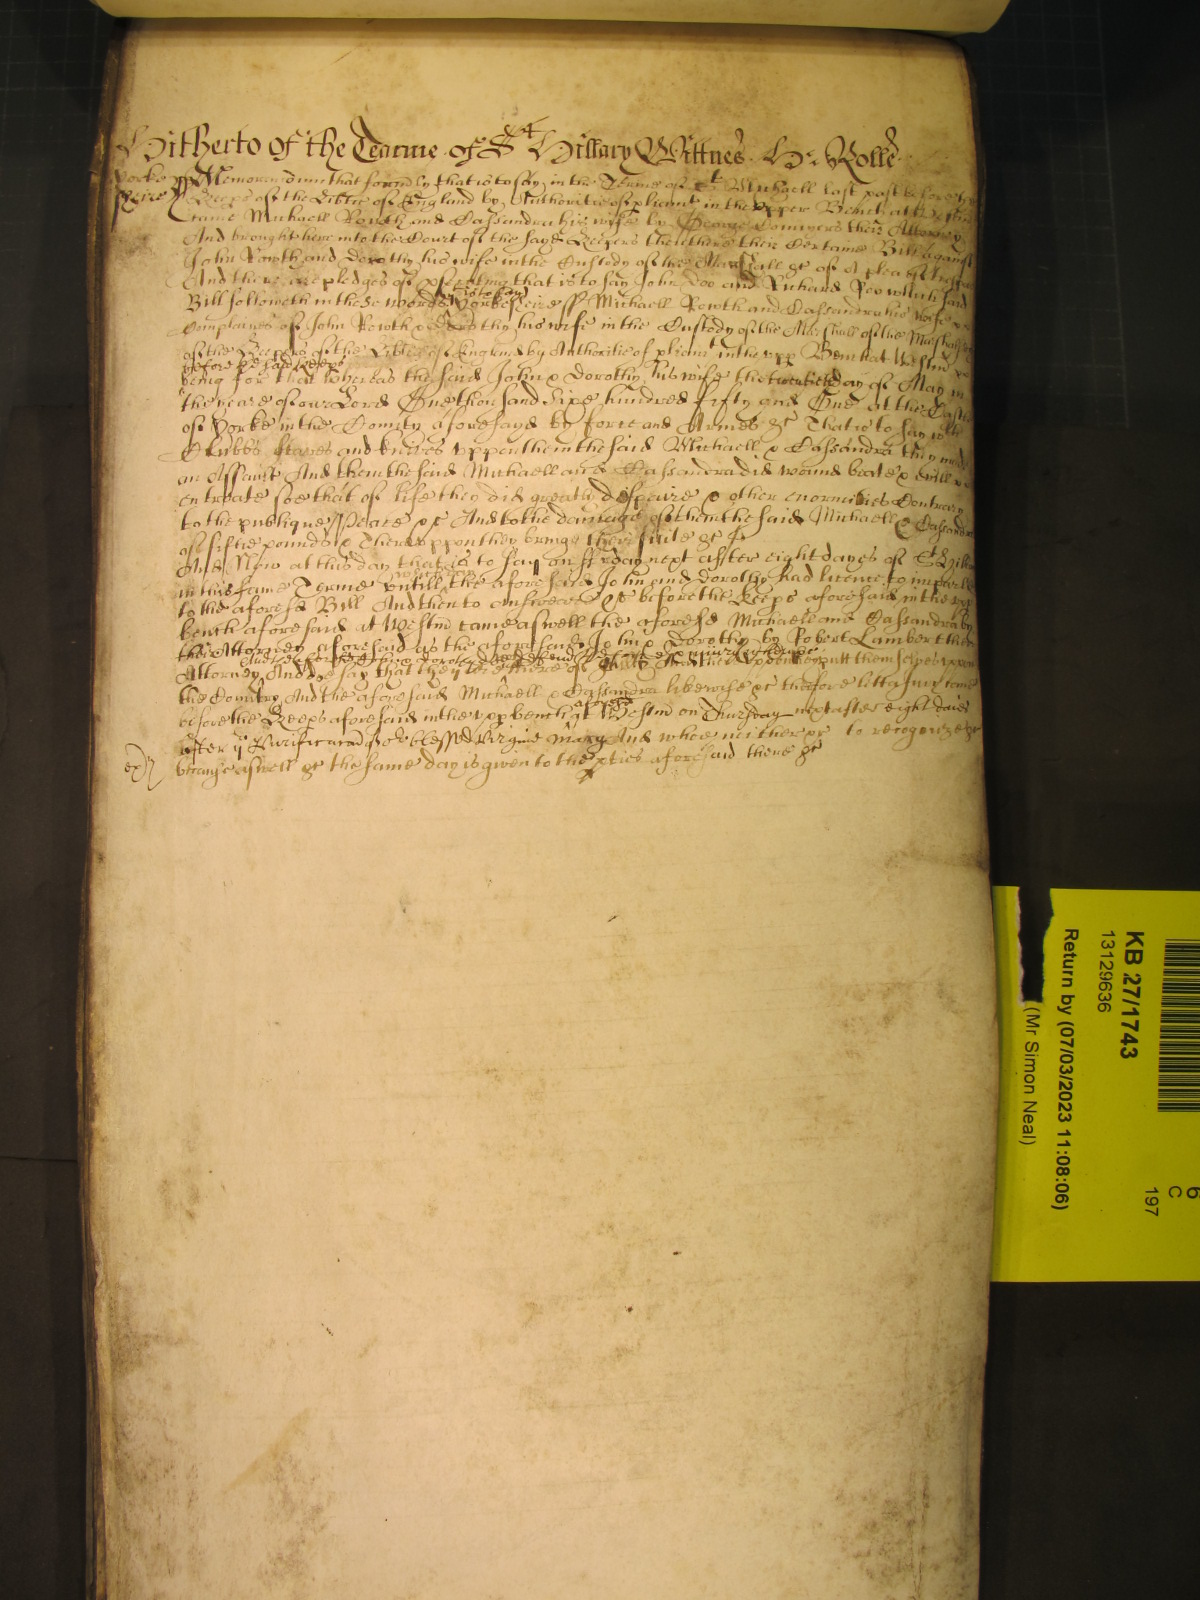 Hitherto of the Tearme of St Hillary Wittnes H: Rolle
Yorke
sheire ss Memorandum that formerly that is to say in the Terme of St Michaell last past before the
Keeps of the Libtie of England by Authoritie of pliamt in the upper Bench at Westm
came Michaell Rowth and Cassandra his wife by George Conyers their Attorney
And brought here into the Court of the sayd Keepers then there their Certaine Bill against
John Rowth and Dorothy his wife in the Custody of the Marshall &c of a plea of trespas
And there are pledges of psecuting that is to say John Doo and Richard Roo which said
Bill followeth in these words that is to say Yorkesheire ss Michaell Rowth and Cassandra his wife
Complaines of John Rowth & Dorothy his wife in the Custody of the Marshall of the Marshalsey
of the Keepers of the Libtie of England by Authoritie of pliamt in the upp Bench at Westm
before the said Keeps
being for that whereas the said John & Dorothy his wife the twentieth day of May in
the yeare of our Lord One thousand Sixe hundred fifty and One at the Castle
of Yorke in the County aforesayd by force and Armes &c That is to say with
Clubbs staves and knives upon them the said Michaell & Cassandra they made
an Assault And them the said Michaell and Cassandra did wound beate & evill
entreate soe that of life they did greatly despaire & other enormities Contrary
to the publique Peace &c And to the damage of them the said Michaell & Cassandra
of fiftie pounds & Thereuppon they bringe their suite &c
And Now at this day that is to say on ffryday next after eight dayes of St Hillar
in this same Terme untill which day the aforesaid John and Dorothy had licence to imparle
to the aforesd Bill And then to answeare &c before the Keeps aforesaid in the upp
bench aforesaid at Westm came aswell the aforesd Michaell and Cassandra by
their Attorney aforesaid as the aforesaid John & Dorothy by Robert Lambert their
Attorney And the said John & Dorothy defend the force & iniury when &c
And say that they are not thereof guilty And thereuppon they putt themselves uppon
the Country And the aforesaid Michaell & Cassandra likewise &c therfore lett a Jury come
before the Keeps aforesaid in the upp bench aforesd at Westm on Thursday next after eight daies
after ye Purificacon of ye blessed Virgine Mary And whoe neither &c to recognize &c
ex)
because aswell &c the same day is given to the pties aforesaid there &c
KB 27/1743
13129636
Return by (07/03/2023 11:08:06)
(Mr Simon Neal)
6
C
197